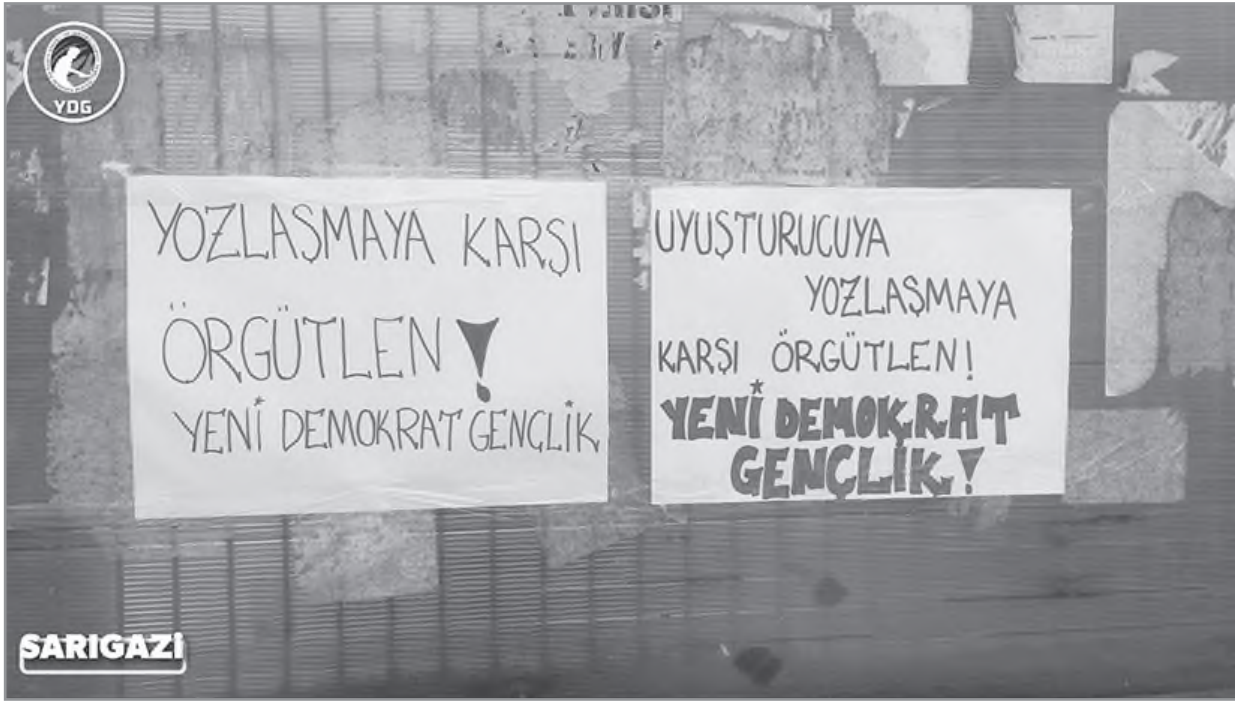 YDG
YOZLAŞMAYA KARŞI
ÖRGÜTLEN!
YENİ DEMOKRAT GENÇLİK
UYUŞTURUCUYA
YOZLAŞMAYA
KARŞI ÖRGÜTLEN!
YENİ DEMOKRAT
GENÇLİK!
SARIGAZİ